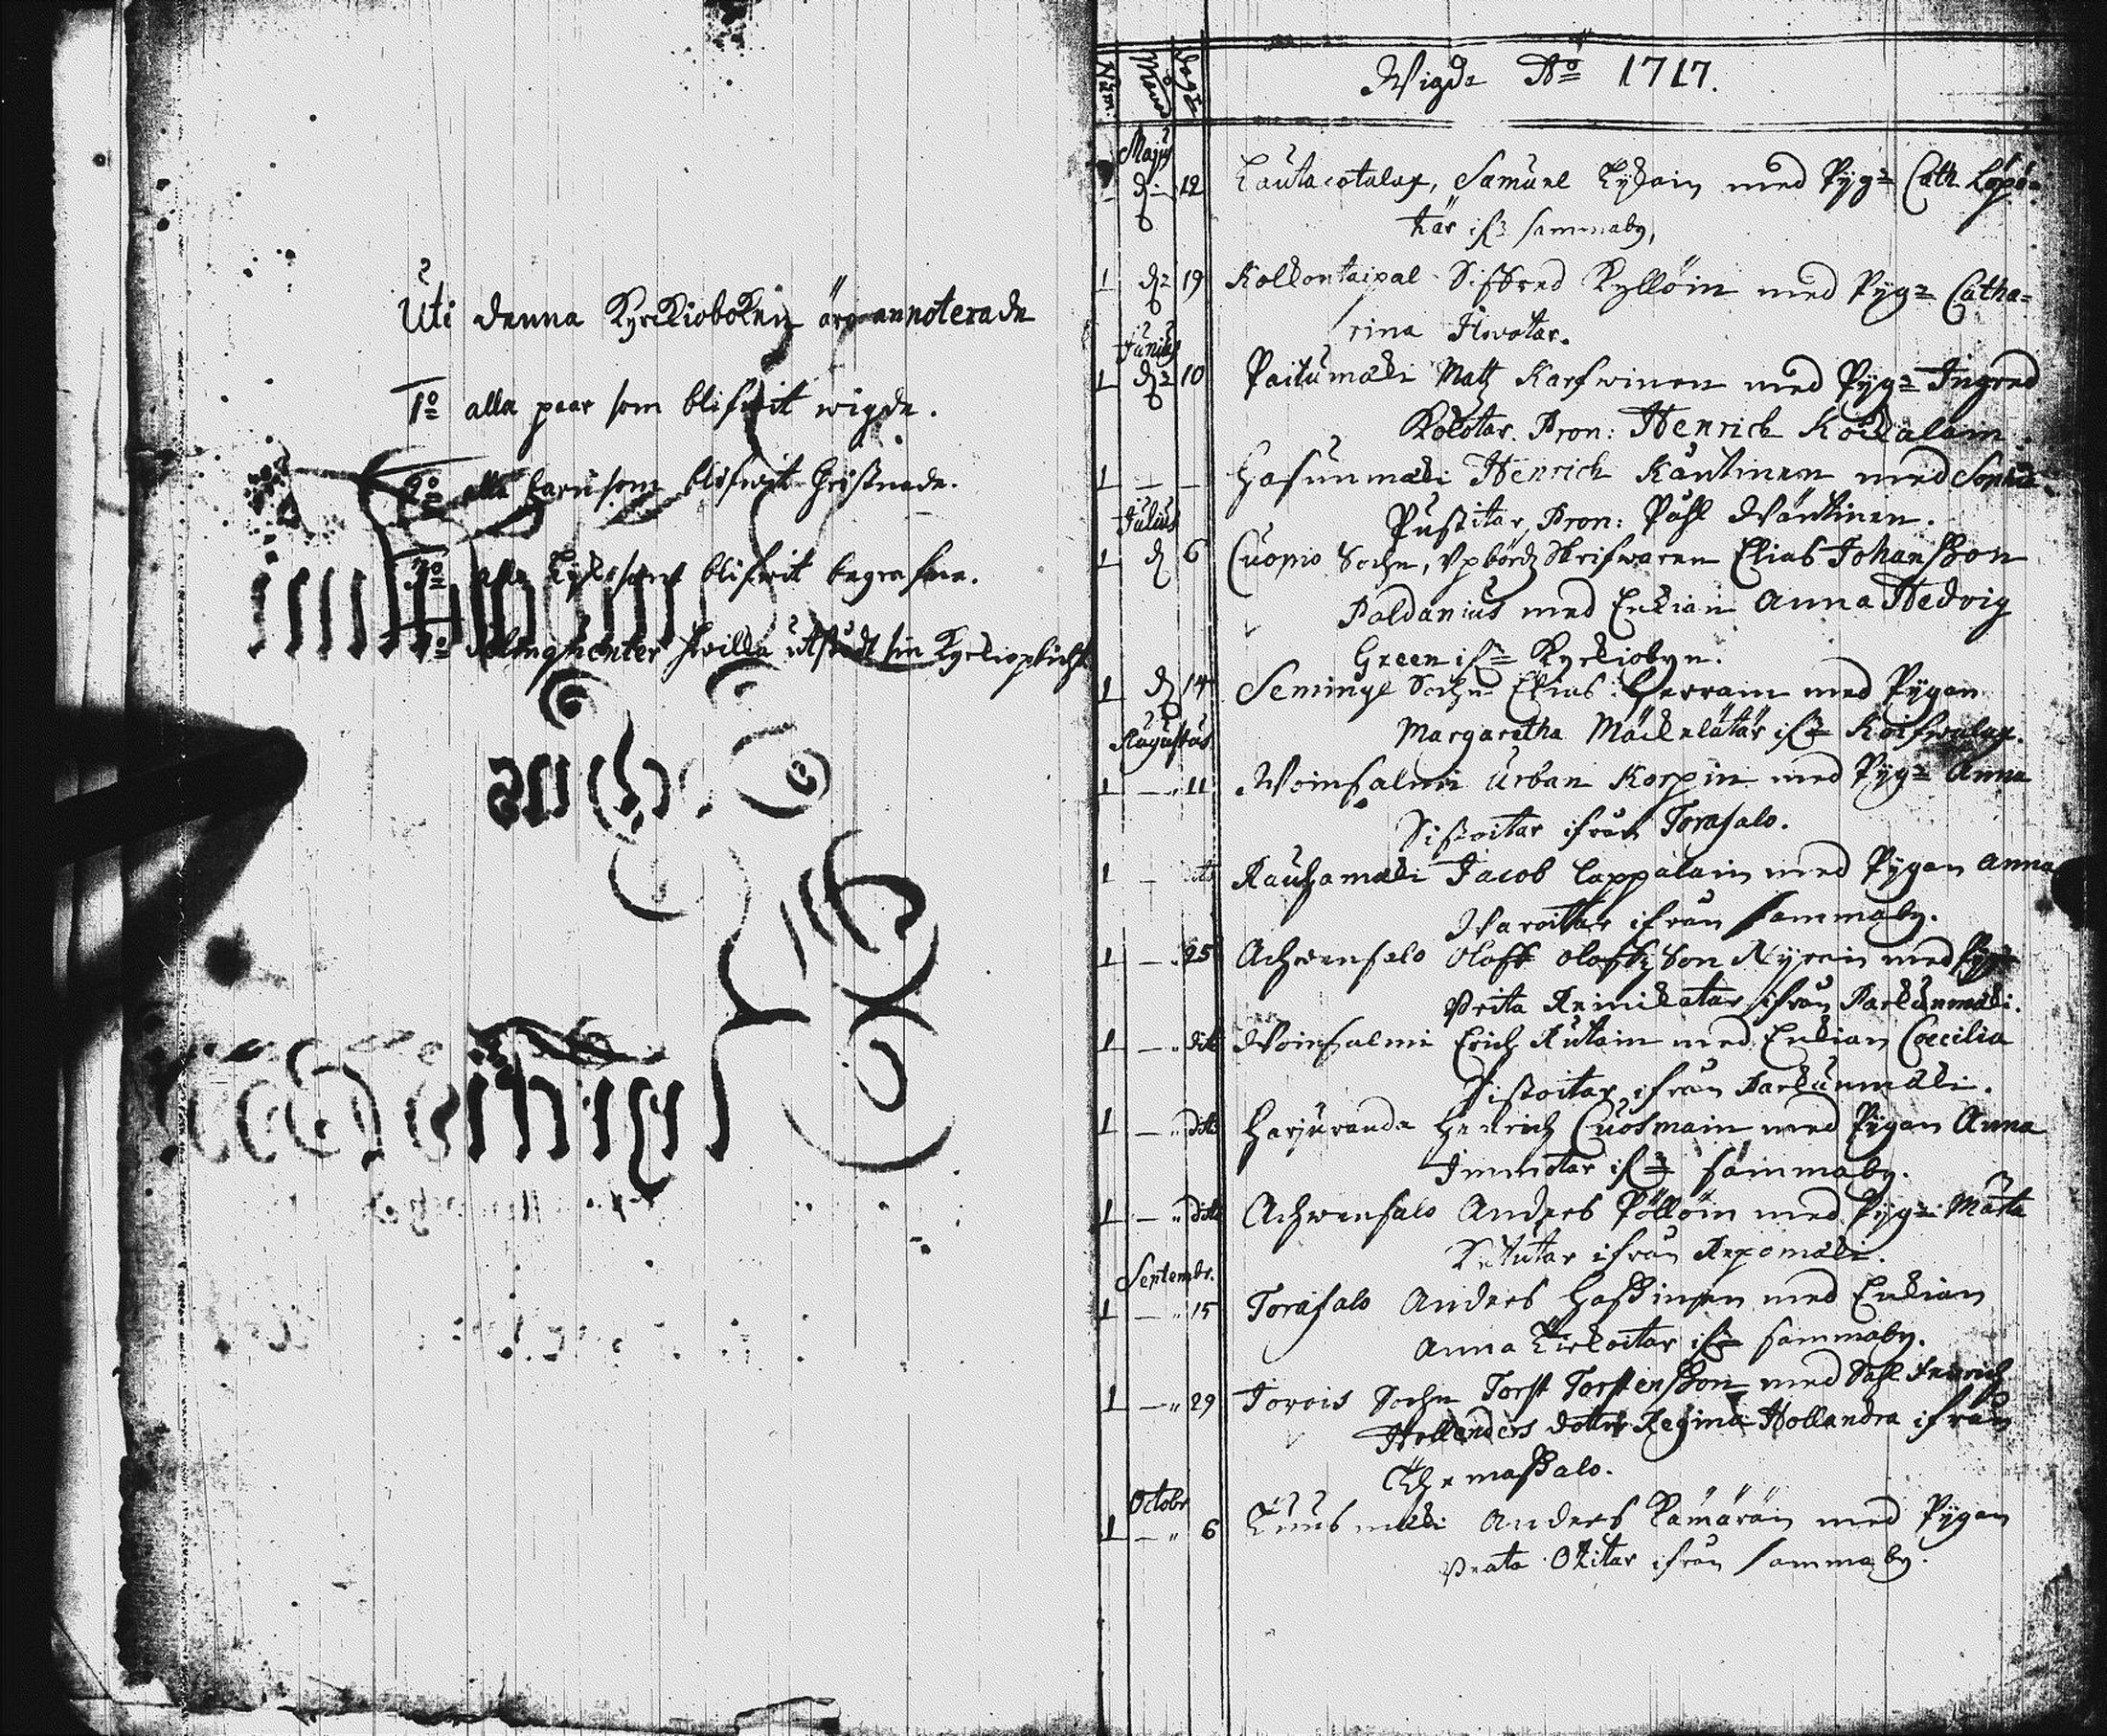 Uti denna Kyrckioboken äro annoterade
1o alla paar som blifwit wigde.
2o alla barn som blifwit Christnade.
3o alla Lyk som blifwit begrafne.
4o Delinqventer hwilka utstådt sin Kyrckioplicht
Num. Månad dagr
Wigde Ao 1717.
Majus
1 d. 12 Lautacotalax, Samuel med Pyg= Cath. Lopo=
tär ifr sammaby,
1 d 19 Kolkontaipal Siffred Kyllöin med Pyg= Catha=
rina Ilwotar.
Junius
1 d 10 Paikumäki Matz Karfwinen med Pyg= Ingred
Kolotar. Pron: Henrich Koikalain
1 — — Hasunmäki Henrich Käntinen med Sophia
Pustitar, Pron: Påhl Wäntinen.
Julius
1 d 6 Cuopio Sochn, Upbördz Skrifwaren Elias Johansson
Paldanius med Enkian Anna Hedvig
Green ifr Kyrkiobyn.
1 d 14 Seminge Sochn Elias Herrain med Pygan
Margaretha Mäckelätär ifr Koifwulax.
Augustus
1 — 11 Woinsalmi Urban Korpin med Pyg= Anna
Sistoitar ifrån Torasalo.
1 — dito Rauhamäki Jacob Lappalain med Pygan Anna
Waroitar ifrån sammaby.
1 — 25 Achwensalo Oloff Oloffzson Nyrein med Pyg=
Brita Reinikatar ifrån Parkunmäki.
1 — dito Woinsalmi Erich Rutain med Enkian Coecilia
Sistoitar ifrån Parkunmäki.
1 — dito Harjuranda Henrich Cuosmain med Pigan Anna
Immotar ifr sammaby.
1 — dito Achwensalo Anders Pöllöin med Pyg= Märta
Kututar ifrån Repomäki.
Septembr.
1 — 15 Torasalo Anders Hassinen med Enkian
Anna Kirkoitar ifr sammaby.
1 — 29 Jorois Sochn Torst Torstensson med Sahl Henrich
Hollenders dotter Regina Hollandra ifrån
Tuhemassalo.
Octobr
1 — 6 Kuusmäki Anders Kämäräin med Pygan
Beata Okitar ifrån sammaby.